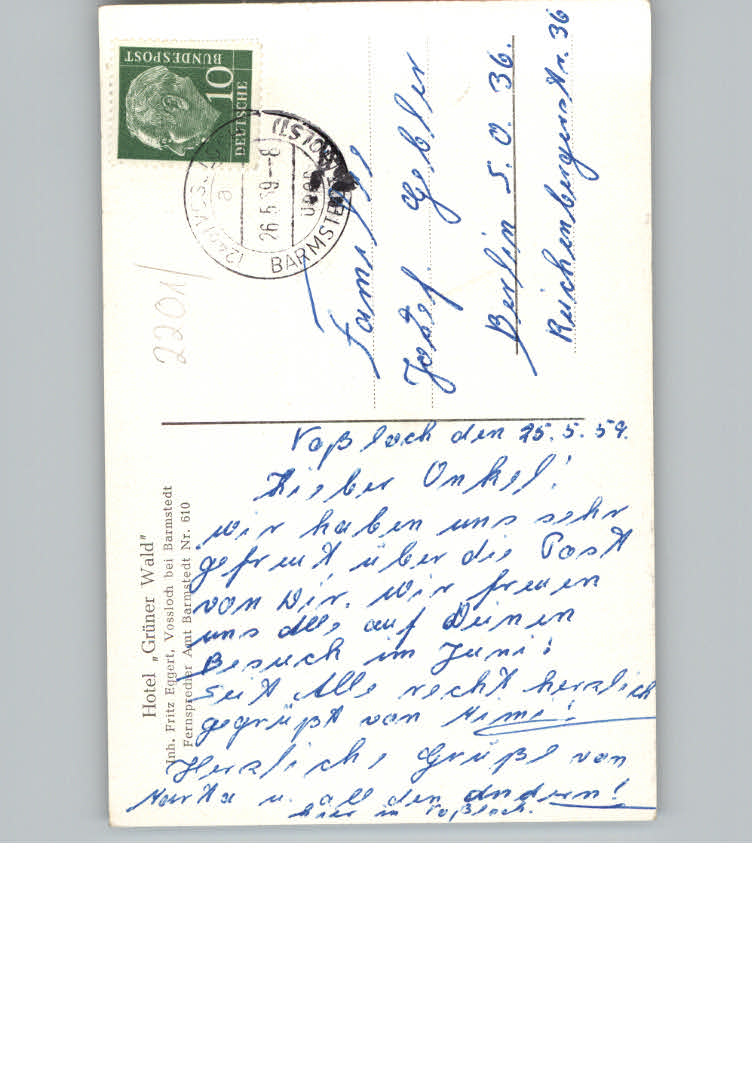 Hotel „Grüner Wald"
Inh. Fritz Eggert, Vossloch bei Barmstedt
Fernsprecher Amt Barmstedt Nr. 610
Voßloch den 25.5.59.
Lieber Onkel!
Wir haben uns sehr
gefreut über die Post
von Dir. Wir freuen
uns alle auf Deinen
Besuch im Juni!
Seit Alle recht herzlich
gegrüßt von Mimi!
Herzliche Grüße von
Marta u. all den andern!
hier in Voßloch.
DEUTSCHE
BUNDESPOST
10
(24b) VOSSLOCH
a
26.5.59.-8
ÜBER
BARMSTEDT (HOLST)
Familie
Josef Gebler
Berlin S.O. 36.
Reichenbergerstr. 36
2201/